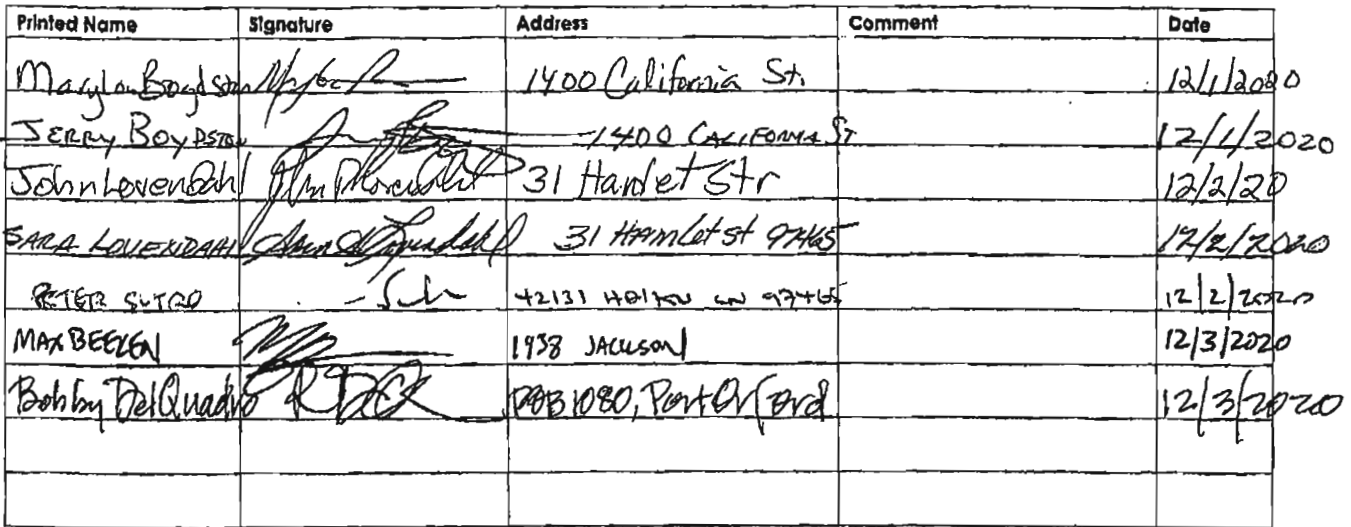 Printed Name Signature Address Comment Date
Marylou Boydston 1400 California St. 12/1/2020
JERRY BOYDSTON 1400 CALIFORNIA ST 12/1/2020
John Lovendahl 31 Hamlet Str 12/2/20
SARA LOVENDAHL 31 Hamlet st 97465 12/2/2020
PETER SUTRO 42131 LN 97465 12/2/2020
MAX BEEKEN 1938 JACKSON 12/3/2020
Bobby DelQuadro POB 1080, Port Orford 12/3/2020